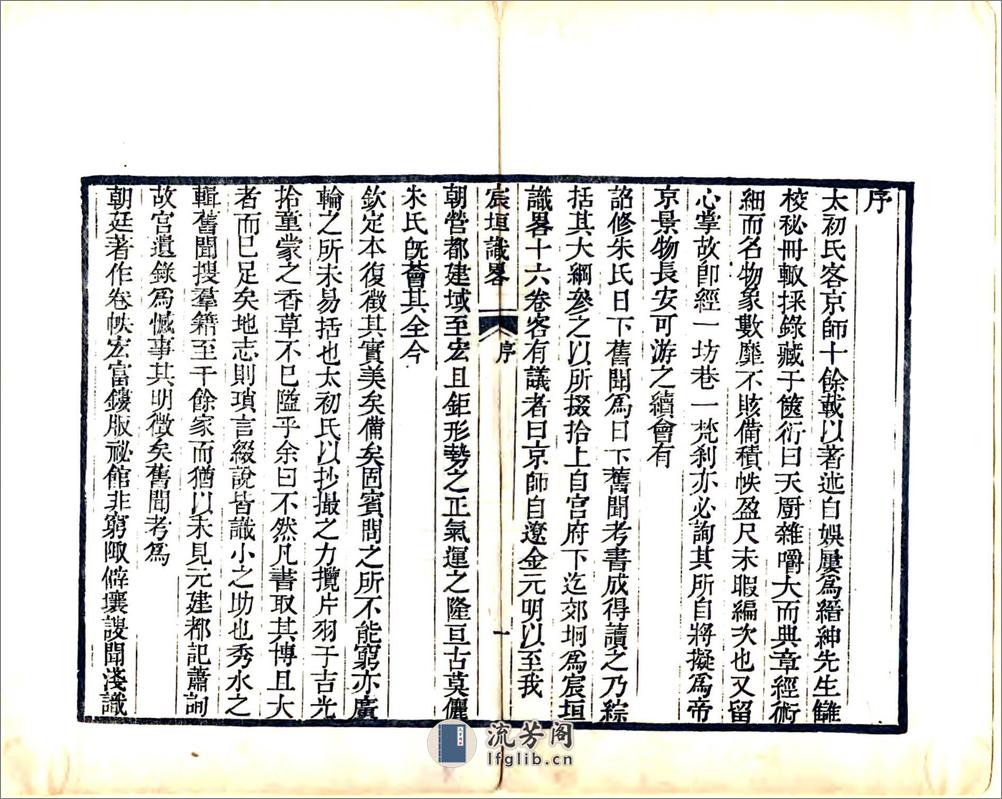 序
太初氏客京師十餘載以著述自娛屢爲縉紳先生讎
校秘冊輙採錄藏于篋衍曰天厨雜嚼大而典章經術
細而名物象數靡不賅備積帙盈尺未暇編次也又留
心掌故卽經一坊巷一梵刹亦必詢其所自將擬爲帝
京景物長安可游之續會有
詔修朱氏日下舊聞爲日下舊聞考書成得讀之乃綜
括其大綱參之以所掇拾上自宮府下迄郊坰爲宸垣
識畧十六卷客有議者曰京師自遼金元明以至我
宸垣識畧 序 一
朝營都建域至宏且鉅形勢之正氣運之隆亘古莫儷
朱氏旣薈其全今
欽定本復徵其實美矣備矣固賓問之所不能窮亦廣
輪之所未易括也太初氏以抄撮之力攬片羽于吉光
拾童蒙之香草不已隘乎余曰不然凡書取其博且大
者而已足矣地志則瑣言綴說皆識小之助也秀水之
輯舊聞搜羣籍至千餘家而猶以未見元建都記蕭洵
故宮遺錄爲憾事其明徵矣舊聞考爲
朝廷著作卷帙宏富鏤版祕館非窮陬僻壤謏聞淺識
流芳阁
lfglib.cn